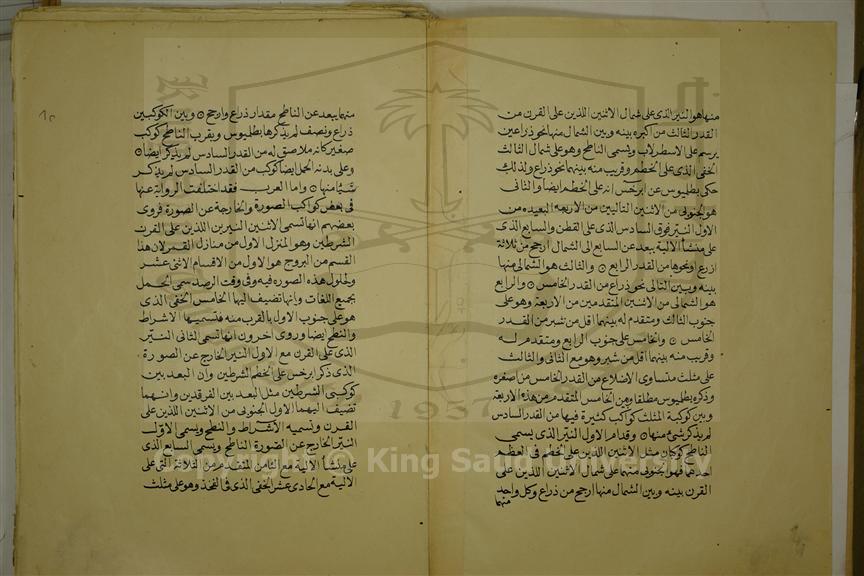 منها هو النير الذى على شمال الاثنين اللذين على القرن من
القدر الثالث من اكبره بينه وبين الشمال منها نحو ذراعين
يرسم على الاسطرلاب ويسمى الناطح وهو على شمال الثالث
الخفى الذى على الخطم وقريب منه بينهما نحو ذراع ولذلك
حكى بطليوس عن ابرخس انه على الخطم ايضا والثانى
هو الجنوبى من الاثنين التاليين من الاربعه البعيده من
الاول النير فوق السادس الذى على القطن والسابع الذى
على منشأ الالية يبعد عن السابع الى الشمال ارجح من ثلاثة
اذرع ونحوها من القدر الرابع والثالث هو الشمالى منها
بينه وبين التالى نحو ذراع من القدر الخامس والرابع
هو الشمالى من الاثنين المتقدمين من الاربعة وهو على
جنوب الثالث ومتقدم له بينهما اقل من شبر من القدر
الخامس والخامس على جنوب الرابع ومتقدم له
وقريب منه بينهما اقل من شبر وهو مع الثانى والثالث
على مثلث متساوى الاضلاع من القدر الخامس من اصغره
وذكره بطليوس مطلقا ومن الخامس المتقدم من هذه الاربعة
وبين كوكبة المثلث كواكب كثيرة فيها من القدر السادس
لم يذكر شئ منها وقدام الاول النير الذى يسمى
الناطح كوكبان مثل الاثنين اللذين على الخطم فى العظم
احدهما فهو الجنوبى منها على شمال الاثنين اللذين على
القرن بينه وبين الشمال منها ارجح من ذراع وكل واحد
منهما
١٥
منهما يبعد عن الناطح مقدار ذراع وارجح وبين الكوكبين
ذراع ونصف لم يذكرها بطليوس وبقرب الناطح كوكب
صغير كانه ملاصق له من القدر السادس لم يذكر ايضا
وعلى بدنه الحمل ايضا كوكب من القدر السادس لم يذكر
شيا منها واما العرب فقد اختلفت الرواية عنها
فى بعض كواكب الصورة والخارجة عن الصورة فروى
بعضهم انها تسمى الاثنين النيرين اللذين على القرن
الشرطين وهو المنزل الاول من منازل القمر لان هذا
القسم من البروج هو الاول من الاقسام الاثنى عشر
ولحلول هذه الصوره فيه فى وقت الرصد سمى الحمل
بجميع اللغات وانها تضيف اليها الخامس الخفى الذى
هو على جنوب الاول بالقرب منه فتسميها الاشراط
والنطح ايضا وروى اخرون انها تسمى الثانى النير
الذى على القرن مع الاول النير الخارج عن الصورة
الذى ذكر ابرخس على الخطم الشرطين وان البعد بين
كوكبى الشرطين مثل البعد بين الفرقدين وانهما
تضيف اليهما الاول الجنوبى من الاثنين اللذين على
القرن وتسميه الاشراط والنطح ويسمى الاول
النير الخارج عن الصورة الناطح ويسمى السابع الذى
على منشأ الالية مع الثامن المتقدم من الثلاثة التى على
الالية مع الحادى عشر الخفى الذى فى الفخذ وهو على مثلث
1957
Copyright © King Saud University